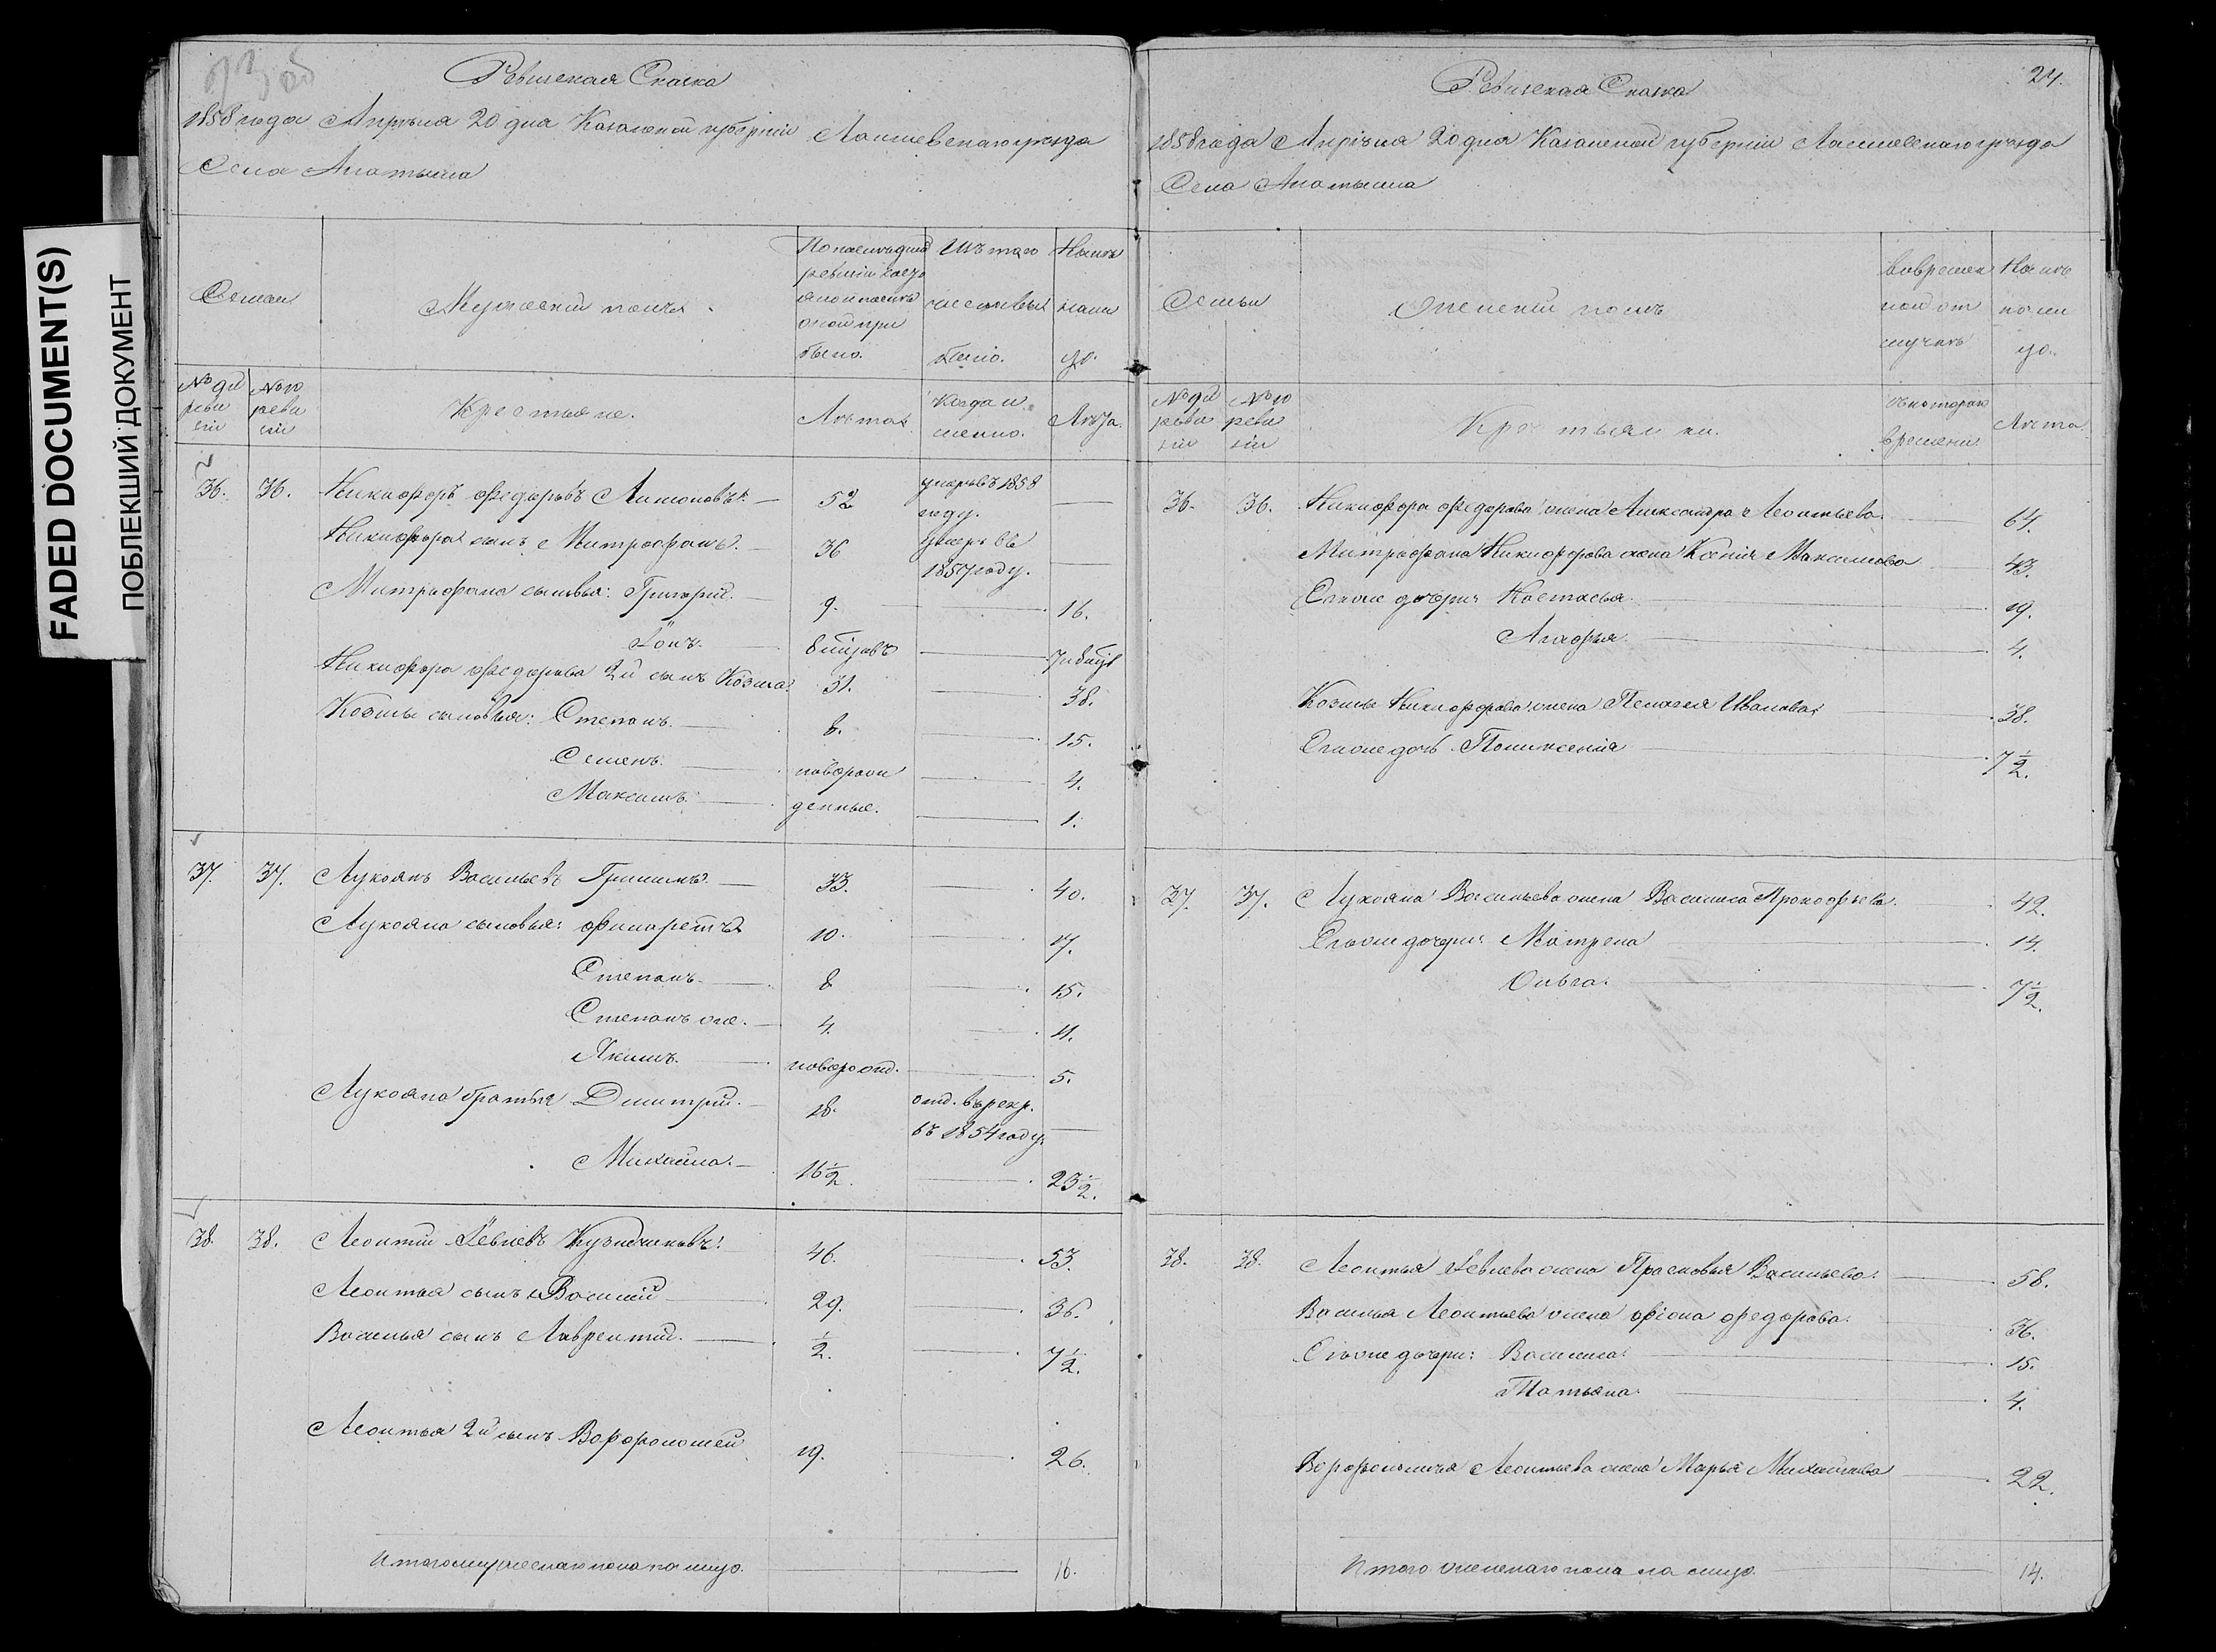 FADED DOCUMENT(S)
ПОБЛЕКШИЙ ДОКУМЕНТ
Ревизская Сказка
1858 года Апрѣля 20 дня Казанской губерніи Лаишевскаго уѣзда
Села
Семьи
Мужескій полъ.
По послѣдней ревизіи состояло и послѣ оной прибыло.
Изъ того числа выбыло.
Нынѣ на лицо.
№ 9й ревизіи
№ 10 ревизіи
Крестьяне.
Лѣта.
Когда именно.
Лѣта.
36. 36. Никифоръ Федоровъ Антоновъ. 52 умеръ въ 1858 году. —
Никифора сынъ Митрофанъ. 36 умеръ въ 1857 году. —
Митрофана сыновья: Григорій. 9. — 16.
Іонъ. —
Никифора Федорова 2й сынъ Козма. 31. — 38.
Козмы сыновья: Степанъ. 8. — 15.
Семенъ. новорож — 4.
Максимъ. денные. — 1.
37. 37. Лукоянъ Васильевъ Гришинъ. 33. — 40.
Лукояна сыновья: Филаретъ 10. — 17.
Степанъ. 8 — 15.
Степанъ же. 4. — 11.
Якимъ. новорожд. — 5.
Лукояна братья Дмитрий. 18. отд. въ рекр. въ 1854 году. —
Михайла. 16 1/2. — 23 1/2.
38. 38. Леонтій Іевлевъ 46. — 53.
Леонтья сынъ Василий 29. — 36.
Василья сынъ Лаврентий. 1/2. — 7 1/2.
Леонтья 2й сынъ 19. — 26.
Итого мужескаго пола на лицо. — 16.
Ревизская Сказка
24.
1858 года Апрѣля 20 дня Казанской губерніи Лаишевскаго уѣзда
Села
Семьи
Женскій полъ
Во временной отлучкѣ
На лицо.
№ 9й ревизіи
№ 10 ревизіи
Крестьянки.
Съ котораго времени.
Лѣта.
36. 36. Никифора Федорова жена Александра Леонтьева. 64.
Митрофана Никифорова жена Ксенія Максимова 43.
Ея же дочери Настасья. 19.
Агафья. 4.
Козмы Никифорова жена Пелагея Иванова 38.
Ея же дочь Поликсенія 7 1/2.
37. 37. Лукояна Васильева жена Василиса Прокофьева. 42.
Его же дочери: Матрена 14.
Ольга. 7 1/2.
38. 38. Леонтья Іевлева жена Прасковья Васильева. 58.
Василья Леонтьева жена Федорова. 36.
Его же дочери: Василиса. 15.
Татьяна. 4.
Леонтьева жена Марья Михайлова 22.
Итого женскаго пола на лицо 14.